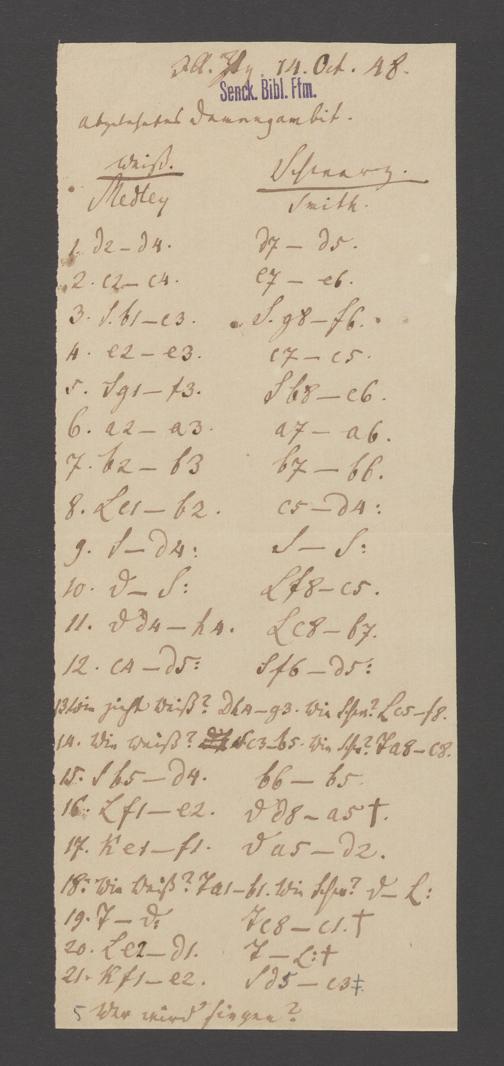 Ill. Ztg. 14. Oct. 48.
Senck. Bibl. Ffm.
Abgelehntes Damengambit.
Weiß. Schwarz.
Medley Smith.
1. d2 — d4. d7 — d5.
2. c2 — c4. e7 — e6.
3. S. b1 — c3. S. g8 — f6.
4. e2 — e3. c7 — c5.
5. Sg1 — f3. Sb8 — c6.
6. a2 — a3. a7 — a6.
7. b2 — b3 b7 — b6.
8. Lc1 — b2. c5 — d4:
9. S — d4: S — S:
10. D — S: Lf8 — c5.
11. Dd4 — h4. Lc8 — b7.
12. c4 — d5: Sf6 — d5:
13. Wie zieht Weiß? Dh4 — g3. Wie Schw? Lc5 — f8.
14. Wie Weiß? Sc3 — b5. Wie Schw? Ta8 — c8.
15. Sb5 — d4. b6 — b5.
16. Lf1 — e2. Dd8 — a5†.
17. Ke1 — f1. Da5 — d2.
18. Wie Weiß? Ta1 — b1. Wie Schw? D — L:
19. T — D: Tc8 — c1.†
20. Le2 — d1. T — L:†
21. Kf1 — e2. Sd5 — c3‡.
5 Wer wird siegen?